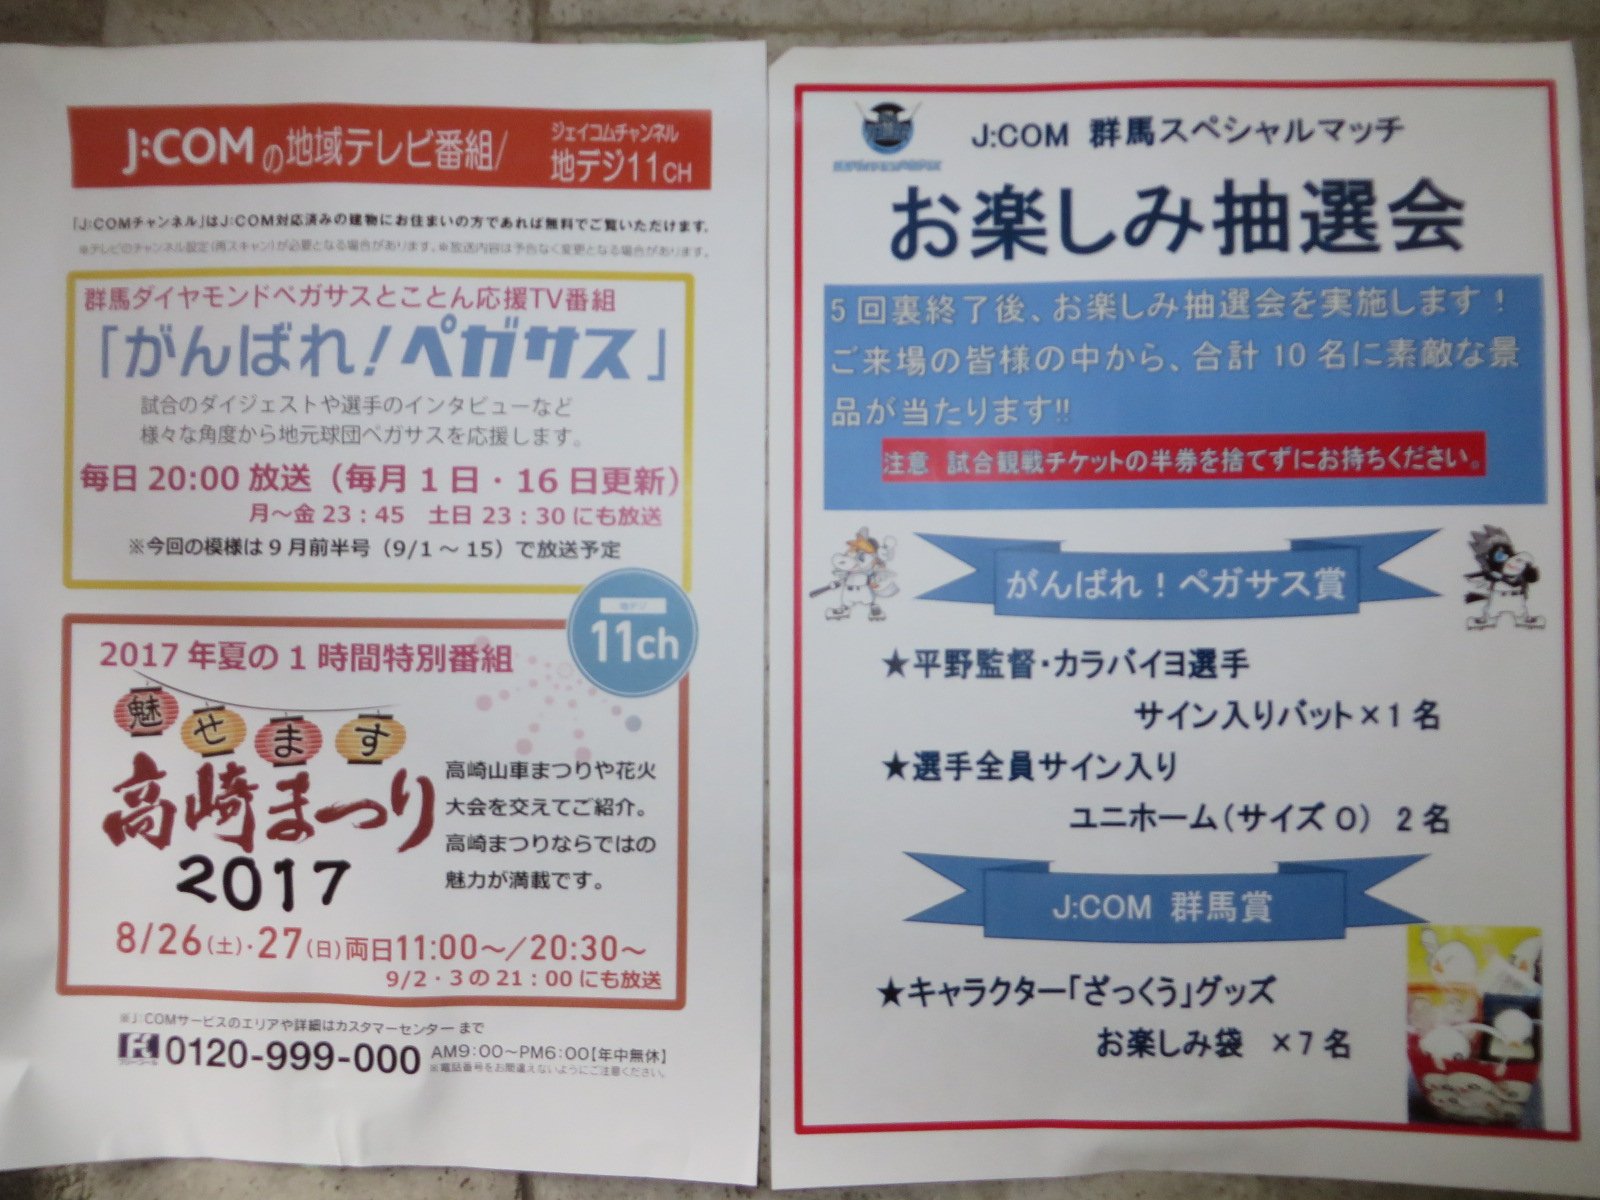 J:COMの地域テレビ番組/
ジェイコムチャンネル
地デジ11CH
「J:COMチャンネル」はJ:COM対応済みの建物にお住まいの方であれば無料でご覧いただけます。
※テレビのチャンネル設定(再スキャン)が必要となる場合があります。※放送内容は予告なく変更となる場合があります。
群馬ダイヤモンドペガサスとことん応援TV番組
「がんばれ!ペガサス」
試合のダイジェストや選手のインタビューなど
様々な角度から地元球団ペガサスを応援します。
毎日20:00放送(毎月1日・16日更新)
月~金23:45 土日23:30にも放送
※今回の模様は9月前半号(9/1~15)で放送予定
地デジ
11ch
2017年夏の1時間特別番組
魅せます
高崎まつり
2017
高崎山車まつりや花火
大会を交えてご紹介。
高崎まつりならではの
魅力が満載です。
8/26(土)・27(日)両日11:00~/20:30~
9/2・3の21:00にも放送
※J:COMサービスのエリアや詳細はカスタマーセンターまで
0120-999-000
AM9:00~PM6:00【年中無休】
※電話番号をお間違えないようにご注意ください。
J:COM 群馬スペシャルマッチ
お楽しみ抽選会
5回裏終了後、お楽しみ抽選会を実施します!
ご来場の皆様の中から、合計10名に素敵な景
品が当たります!!
注意 試合観戦チケットの半券を捨てずにお持ちください。
がんばれ!ペガサス賞
★平野監督・カラバイヨ選手
サイン入りバット×1名
★選手全員サイン入り
ユニホーム(サイズO) 2名
J:COM 群馬賞
★キャラクター「ざっくぅ」グッズ
お楽しみ袋 ×7名